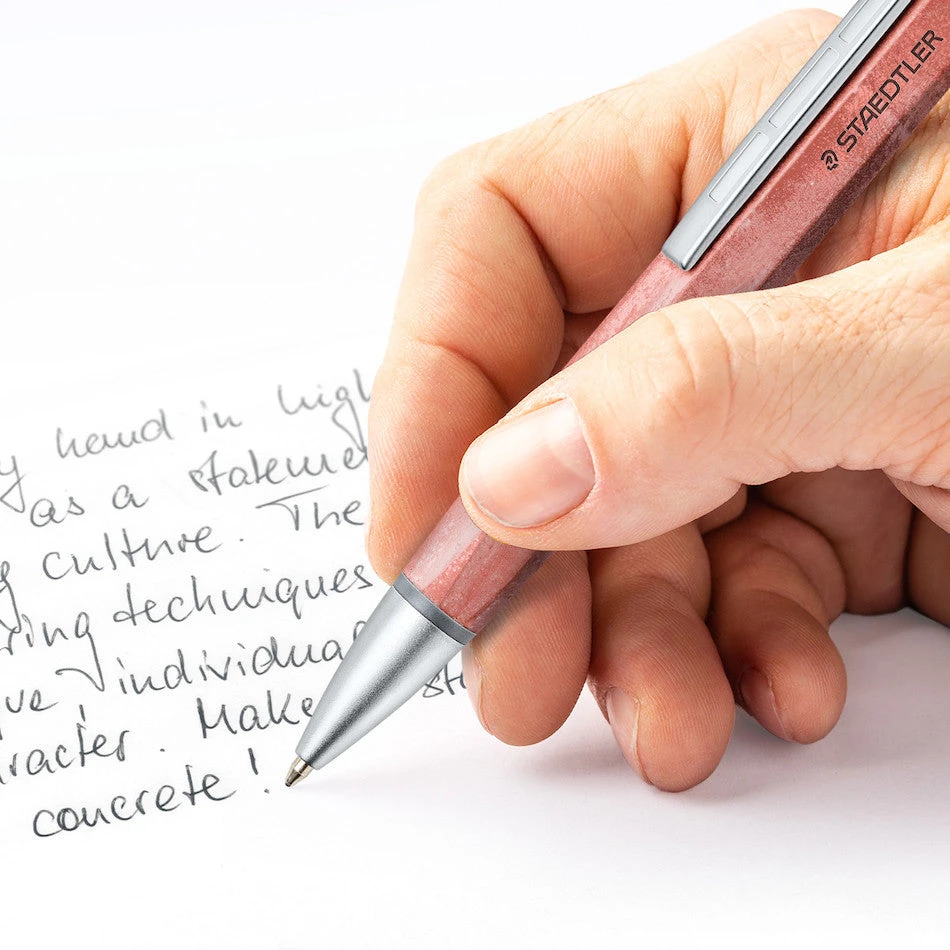 STAEDTLER
y hand in high
as a stateme
g culture. The
ring techniques
ve, individua
racter. Make st
concrete!